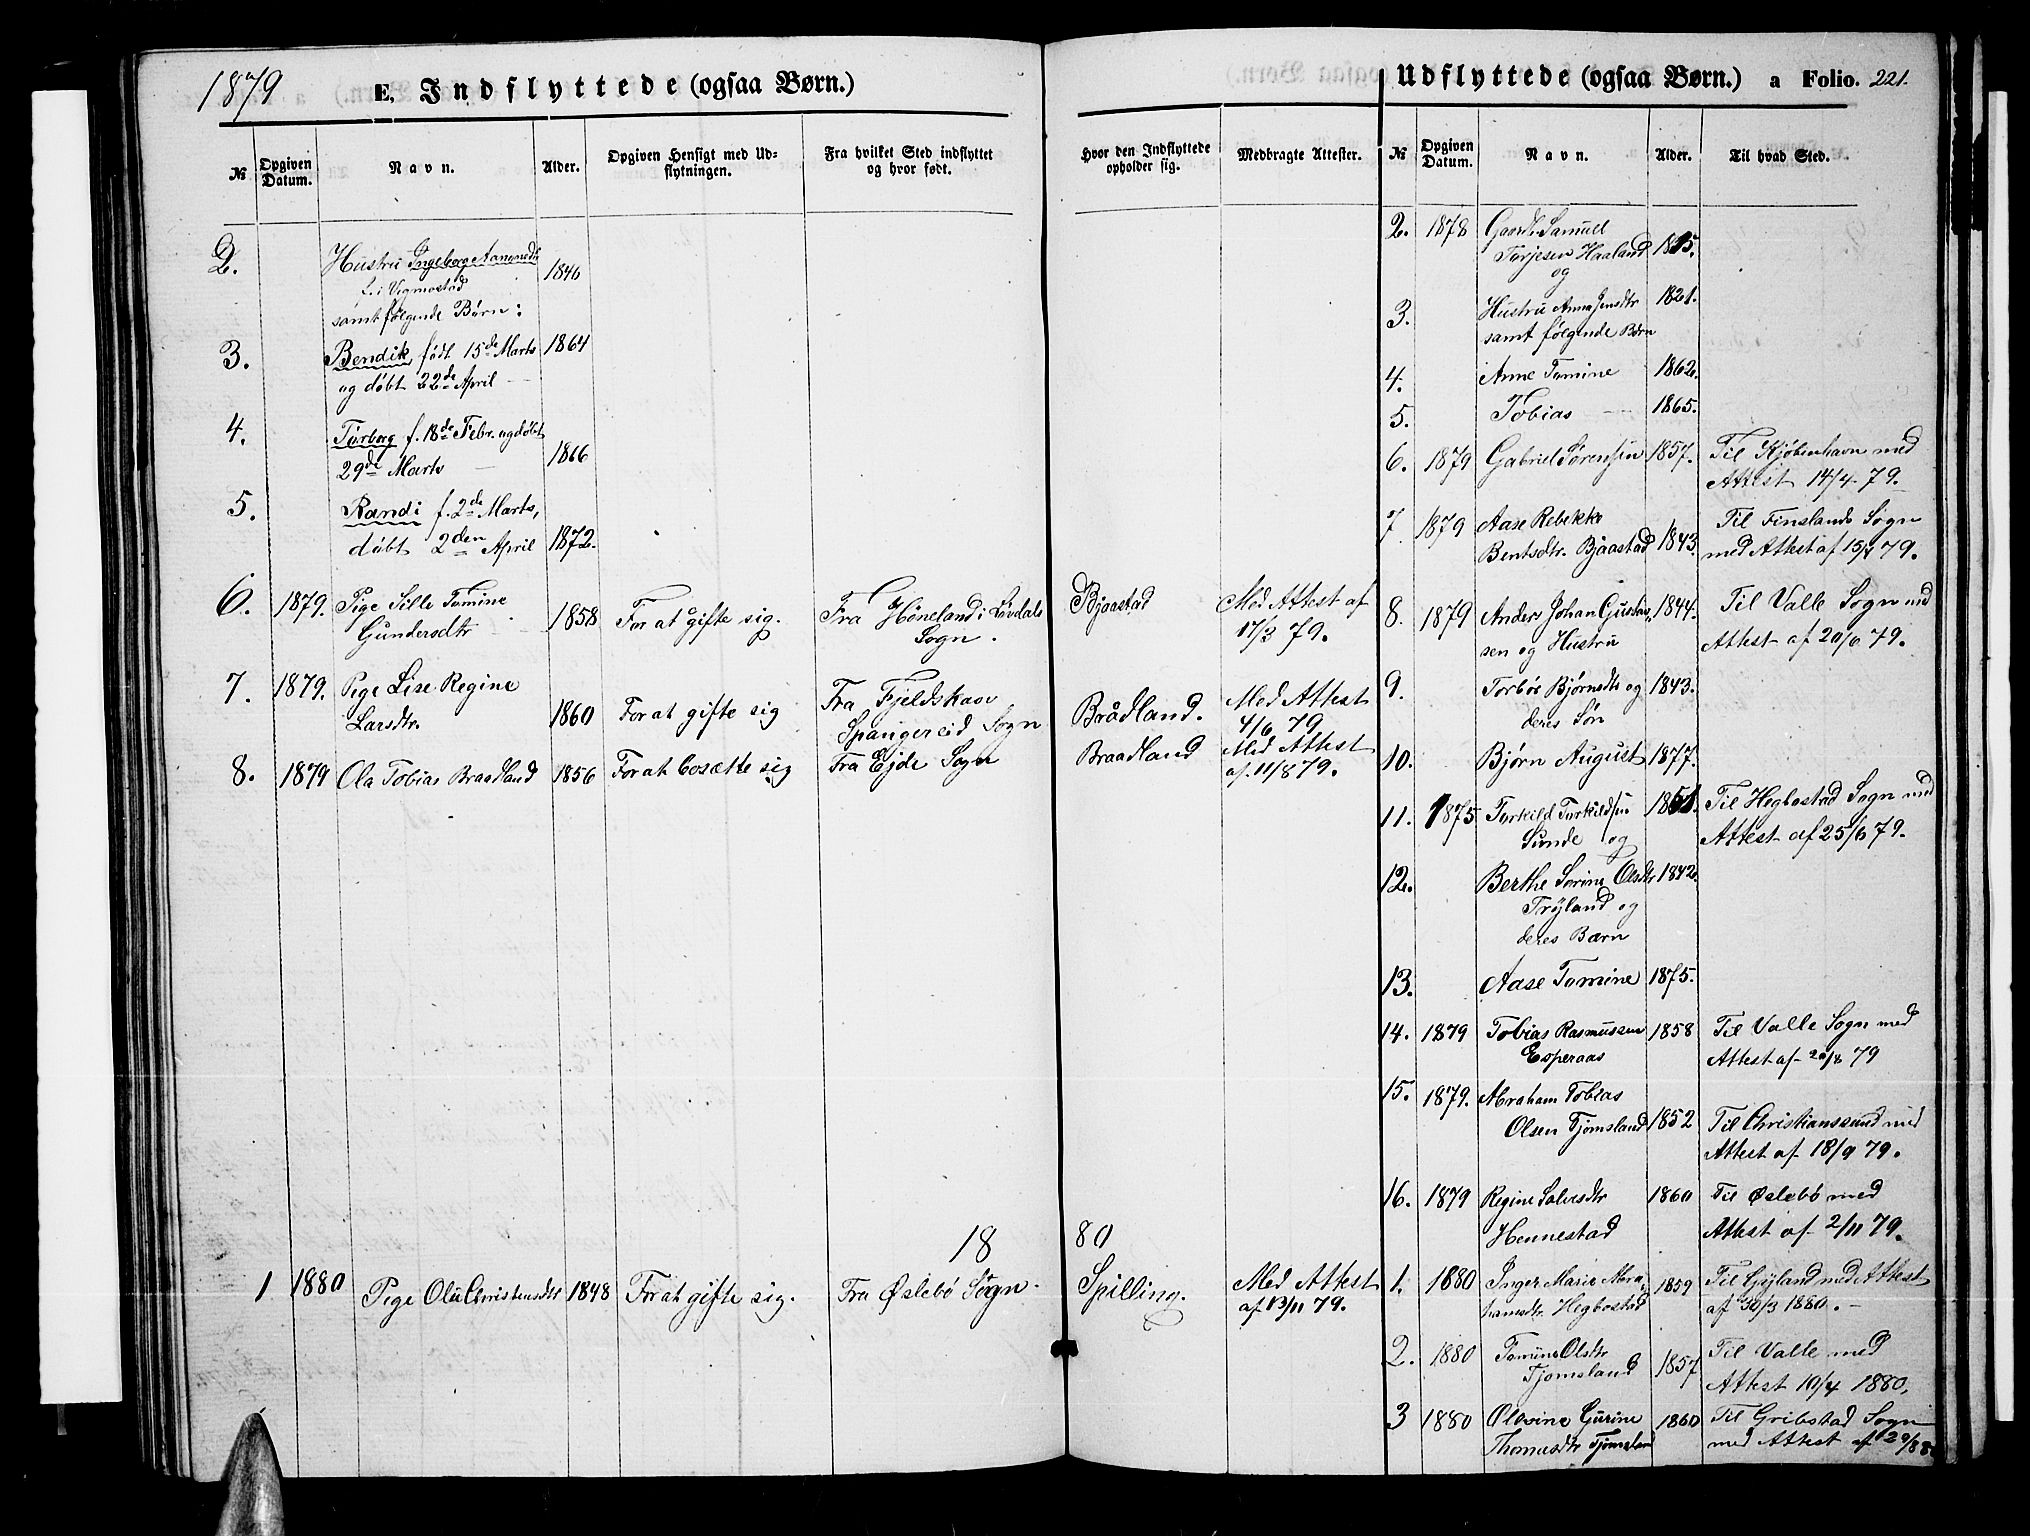 1879
E. Indflyttede (ogsaa Børn.)
№
Opgiven Datum.
Navn.
Alder.
Opgiven Hensigt med Ud-
flytningen.
Fra hvilket Sted indflyttet
og hvor født.
Hvor den Indflyttede
opholder sig.
Medbragte Attester.
2.
Hustru Ingeborg Aanensdtr 1840
f. i Vigmostad
samt følgende Børn:
3. Bendik født 15de Marts 1864
og døbt 22de April –
4. Torborg f. 18de Febr. og døbt
29de Marts – 1866
5. Randi f. 2de Marts,
døbt 2den April 1872.
6. 1879. Pige Sille Tomine
Gundersdtr 1858 For at gifte sig. Fra Høneland i Løvdals
Sogn. Bjaastad Med Attest af
17/3 79.
7. 1879. Pige Lise Regine
Larsdtr. 1860 For at gifte sig Fra Fjeldskaar
Spangereid Sogn Brådland. Med Attest
4/6 79
8. 1879 Ola Tobias Braadland 1856 For at bosætte sig Fra Ejde Sogn Braadland Med Attest
af 11/8 79.
18 80
1 1880 Pige Olu Christensdtr 1848 For at gifte sig. Fra Øslebø Sogn. Spilling. Med Attest
af 13/11 79.
Udflyttede (ogsaa Børn.) a Folio. 221.
№
Opgiven Datum.
Navn.
Alder.
Til hvad Sted.
2. 1878 Gaardb. Samuel
Torjesen Haaland 1815.
og
3. Hustru Anna Jensdtr 1821.
samt følgende Børn
4. Anne Tomine 1862.
5. Tobias – 1865.
6. 1879 Gabriel Sørensen 1857. Til Kjøbenhavn med
Attest 14/4 79.
7. 1879 Aase Rebekke
Bentsdtr. Bjaastad 1843. Til Finslands Sogn
med Attest af 15/4 79.
8. 1879 Anders Johan Gustav- 1844. Til Valle Sogn med
sen og Hustru Attest af 20/6 79.
9. Torbør Bjørnsdtr og 1843.
deres Søn
10. Bjørn August 1877.
11. 1875 Torkild Torkildsen 1851. Til Hegbostad Sogn med
Sunde og Attest af 25/6 79.
12. Berthe Sorine Olsdtr 1842.
Trøland og
deres Barn
13. Aase Tomine 1875.
14. 1879 Tobias Rasmussen 1858 Til Valle Sogn med
Esperaas Attest af 20/8 79
15. 1879. Abraham Tobias
Olsen Tjomsland 1852 Til Christianssund med
Attest af 18/9 79.
16. 1879 Regine Salvesdtr 1860 Til Øslebø med
Hennestad Attest af 2/11 79.
1. 1880 Inger Marie Abra- 1859 Til Gyland med Attest
hamsdtr. Hegbostad af 30/3 1880. –
2. 1880 Tomine Olsdtr
Tjomsland 1857 Til Valle med
Attest 10/4 1880.
3 1880 Olevine Gurine 1860 Til Gribstad Sogn
Thomasdtr Tjomsland med Attest af 29/8 8